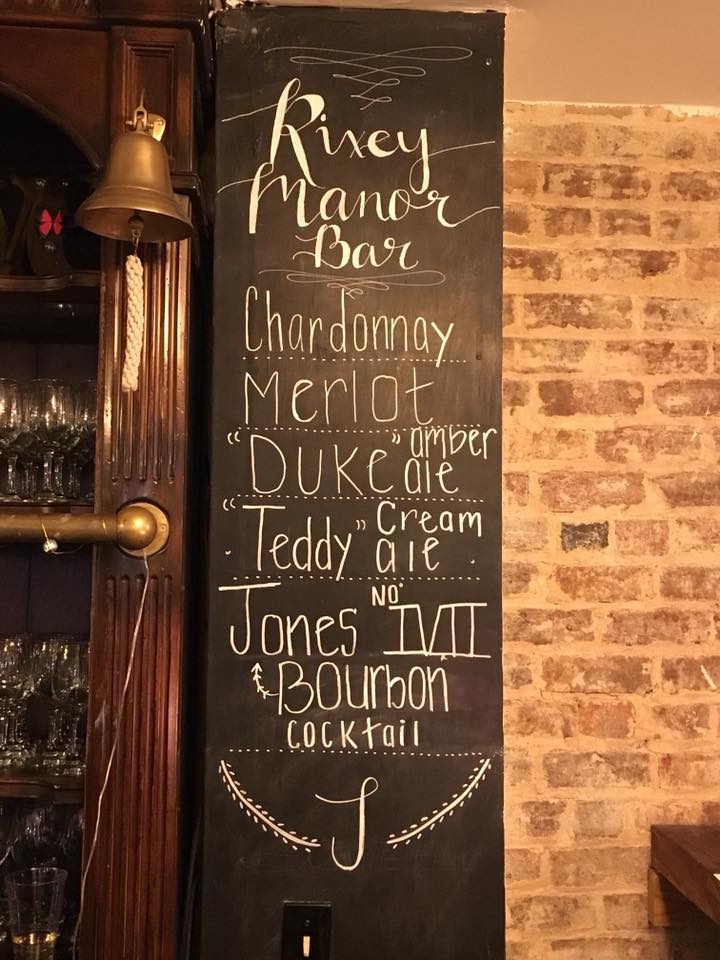 Rixey
Manor
Bar
Chardonnay
Merlot
"DUKE" amber
ale
"Teddy" Cream
ale
Jones No. IVII
Bourbon
cocktail
J